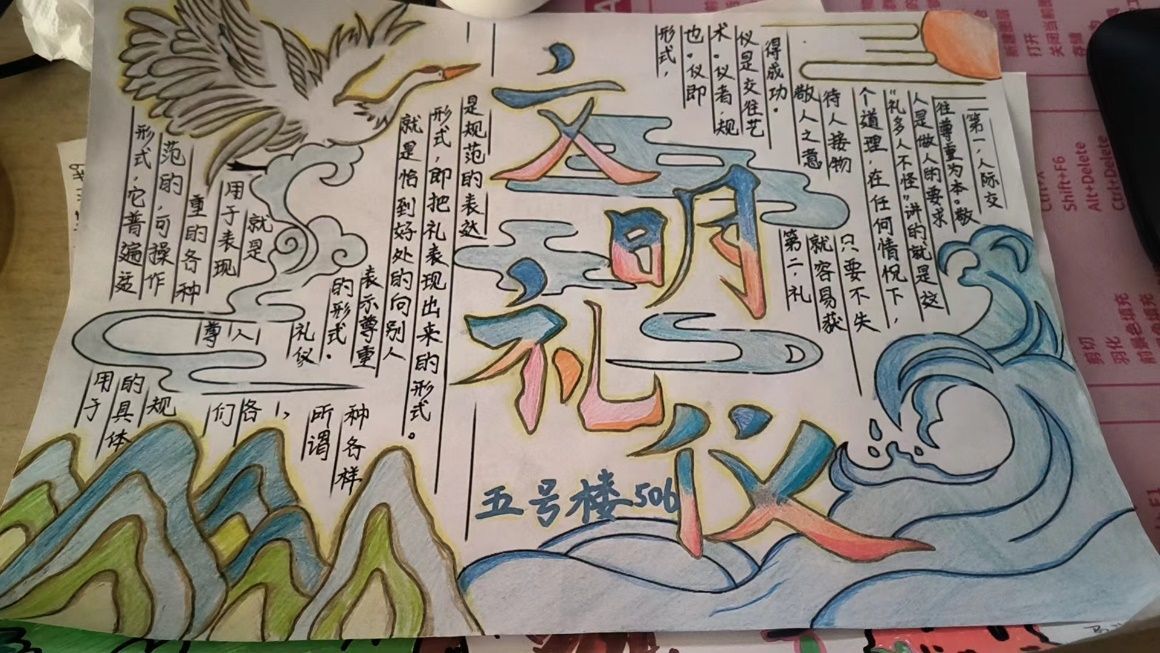 文明礼仪
五号楼506
第一，人际交
往尊重为本。敬
人是做人的要求
“礼多人不怪”讲的就是这
个道理，在任何情况下，
待人接物
只要不失
敬人之意
就容易获
得成功。
第二，礼
仪是交往艺
术。仪者，规
也。仪即
形式，
是规范的表达
形式，即把礼表现出来的形式。
就是恰到好处的向别人
表示尊重
的形式。
礼仪
就是
人
用于表现
尊
重的各种
规
范的，可操作
的具体
形式，它普遍运
用于
们
各
种各样
，
所谓
打开
Shift+F6
Alt+Delete
Ctrl+Delete
剪切
羽化
前景色填充
背景色填充